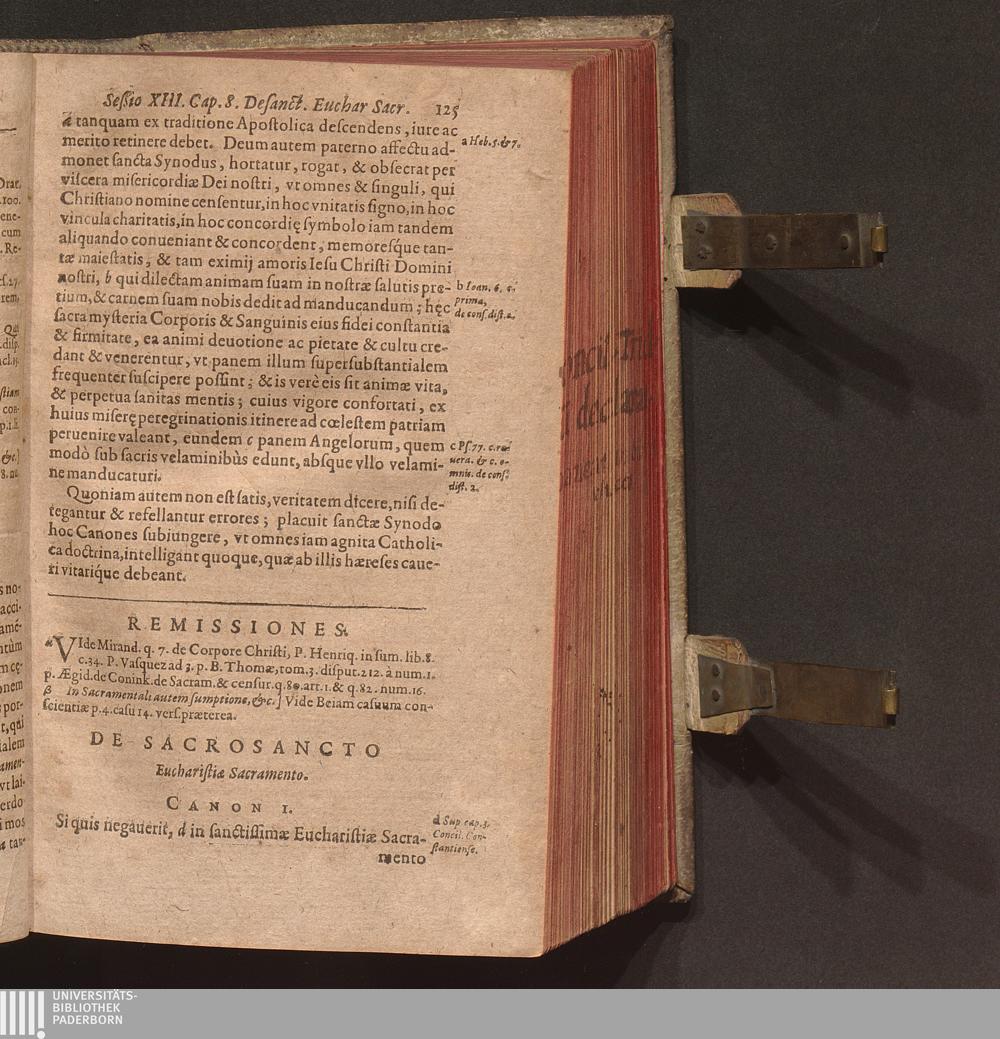 Seſsio XIII. Cap. 8. De ſanct. Euchar Sacr. 125
a tanquam ex traditione Apoſtolica deſcendens, iure ac
merito retinere debet. Deum autem paterno affectu ad-
monet ſancta Synodus, hortatur, rogat, & obſecrat per
viſcera miſericordiæ Dei noſtri, vt omnes & ſinguli, qui
Chriſtiano nomine cenſentur, in hoc vnitatis ſigno, in hoc
vincula charitatis, in hoc concordię ſymbolo iam tandem
aliquando conueniant & concordent, memoreſq́ue tan-
tæ maieſtatis, & tam eximij amoris Ieſu Chriſti Domini
noſtri, b qui dilectam animam ſuam in noſtræ ſalutis pre-
tium, & carnem ſuam nobis dedit ad manducandum; hęc
ſacra myſteria Corporis & Sanguinis eius fidei conſtantia
& firmitate, ea animi deuotione ac pietate & cultu cre-
dant & venerentur, vt panem illum ſuperſubſtantialem
frequenter ſuſcipere poſſint; & is verè eis ſit animæ vita,
& perpetua ſanitas mentis; cuius vigore confortati, ex
huius miſerę peregrinationis itinere ad cœleſtem patriam
peruenire valeant, eundem c panem Angelorum, quem
modò ſub ſacris velaminibùs edunt, abſque vllo velami-
ne manducaturi.
Quoniam autem non eſt ſatis, veritatem dicere, niſi de-
tegantur & refellantur errores; placuit ſanctæ Synodo
hoc Canones ſubiungere, vt omnes iam agnita Catholi-
ca doctrina, intelligant quoque, quæ ab illis hæreſes caue-
ri vitariq́ue debeant.
a Heb. 5. & 7.
b Ioan. 6. c.
prima,
de conſ. diſt. 2.
c Pſ. 77. c. re-
uera. & c. o-
mnis. de conſ.
diſt. 2.
REMISSIONES.
a VIde Mirand. q. 7. de Corpore Chriſti, P. Henriq. in ſum. lib. 8.
c. 34. P. Vaſquez ad 3. p. B. Thomæ, tom. 3. diſput. 212. à num. 1.
p. Ægid. de Conink. de Sacram. & cenſur. q. 80. art. 1. & q. 82. num. 16.
β In Sacramentali autem ſumptione, &c.] Vide Beiam caſuum con-
ſcientiæ p. 4. caſu 14. verſ. præterea.
DE SACROSANCTO
Euchariſtiæ Sacramento.
CANON I.
Si quis negauerit, d in ſanctiſſimæ Euchariſtiæ Sacra-
mento
d Sup cap. 3.
Concil. Con-
ſtantienſe.
UNIVERSITÄTS-
BIBLIOTHEK
PADERBORN